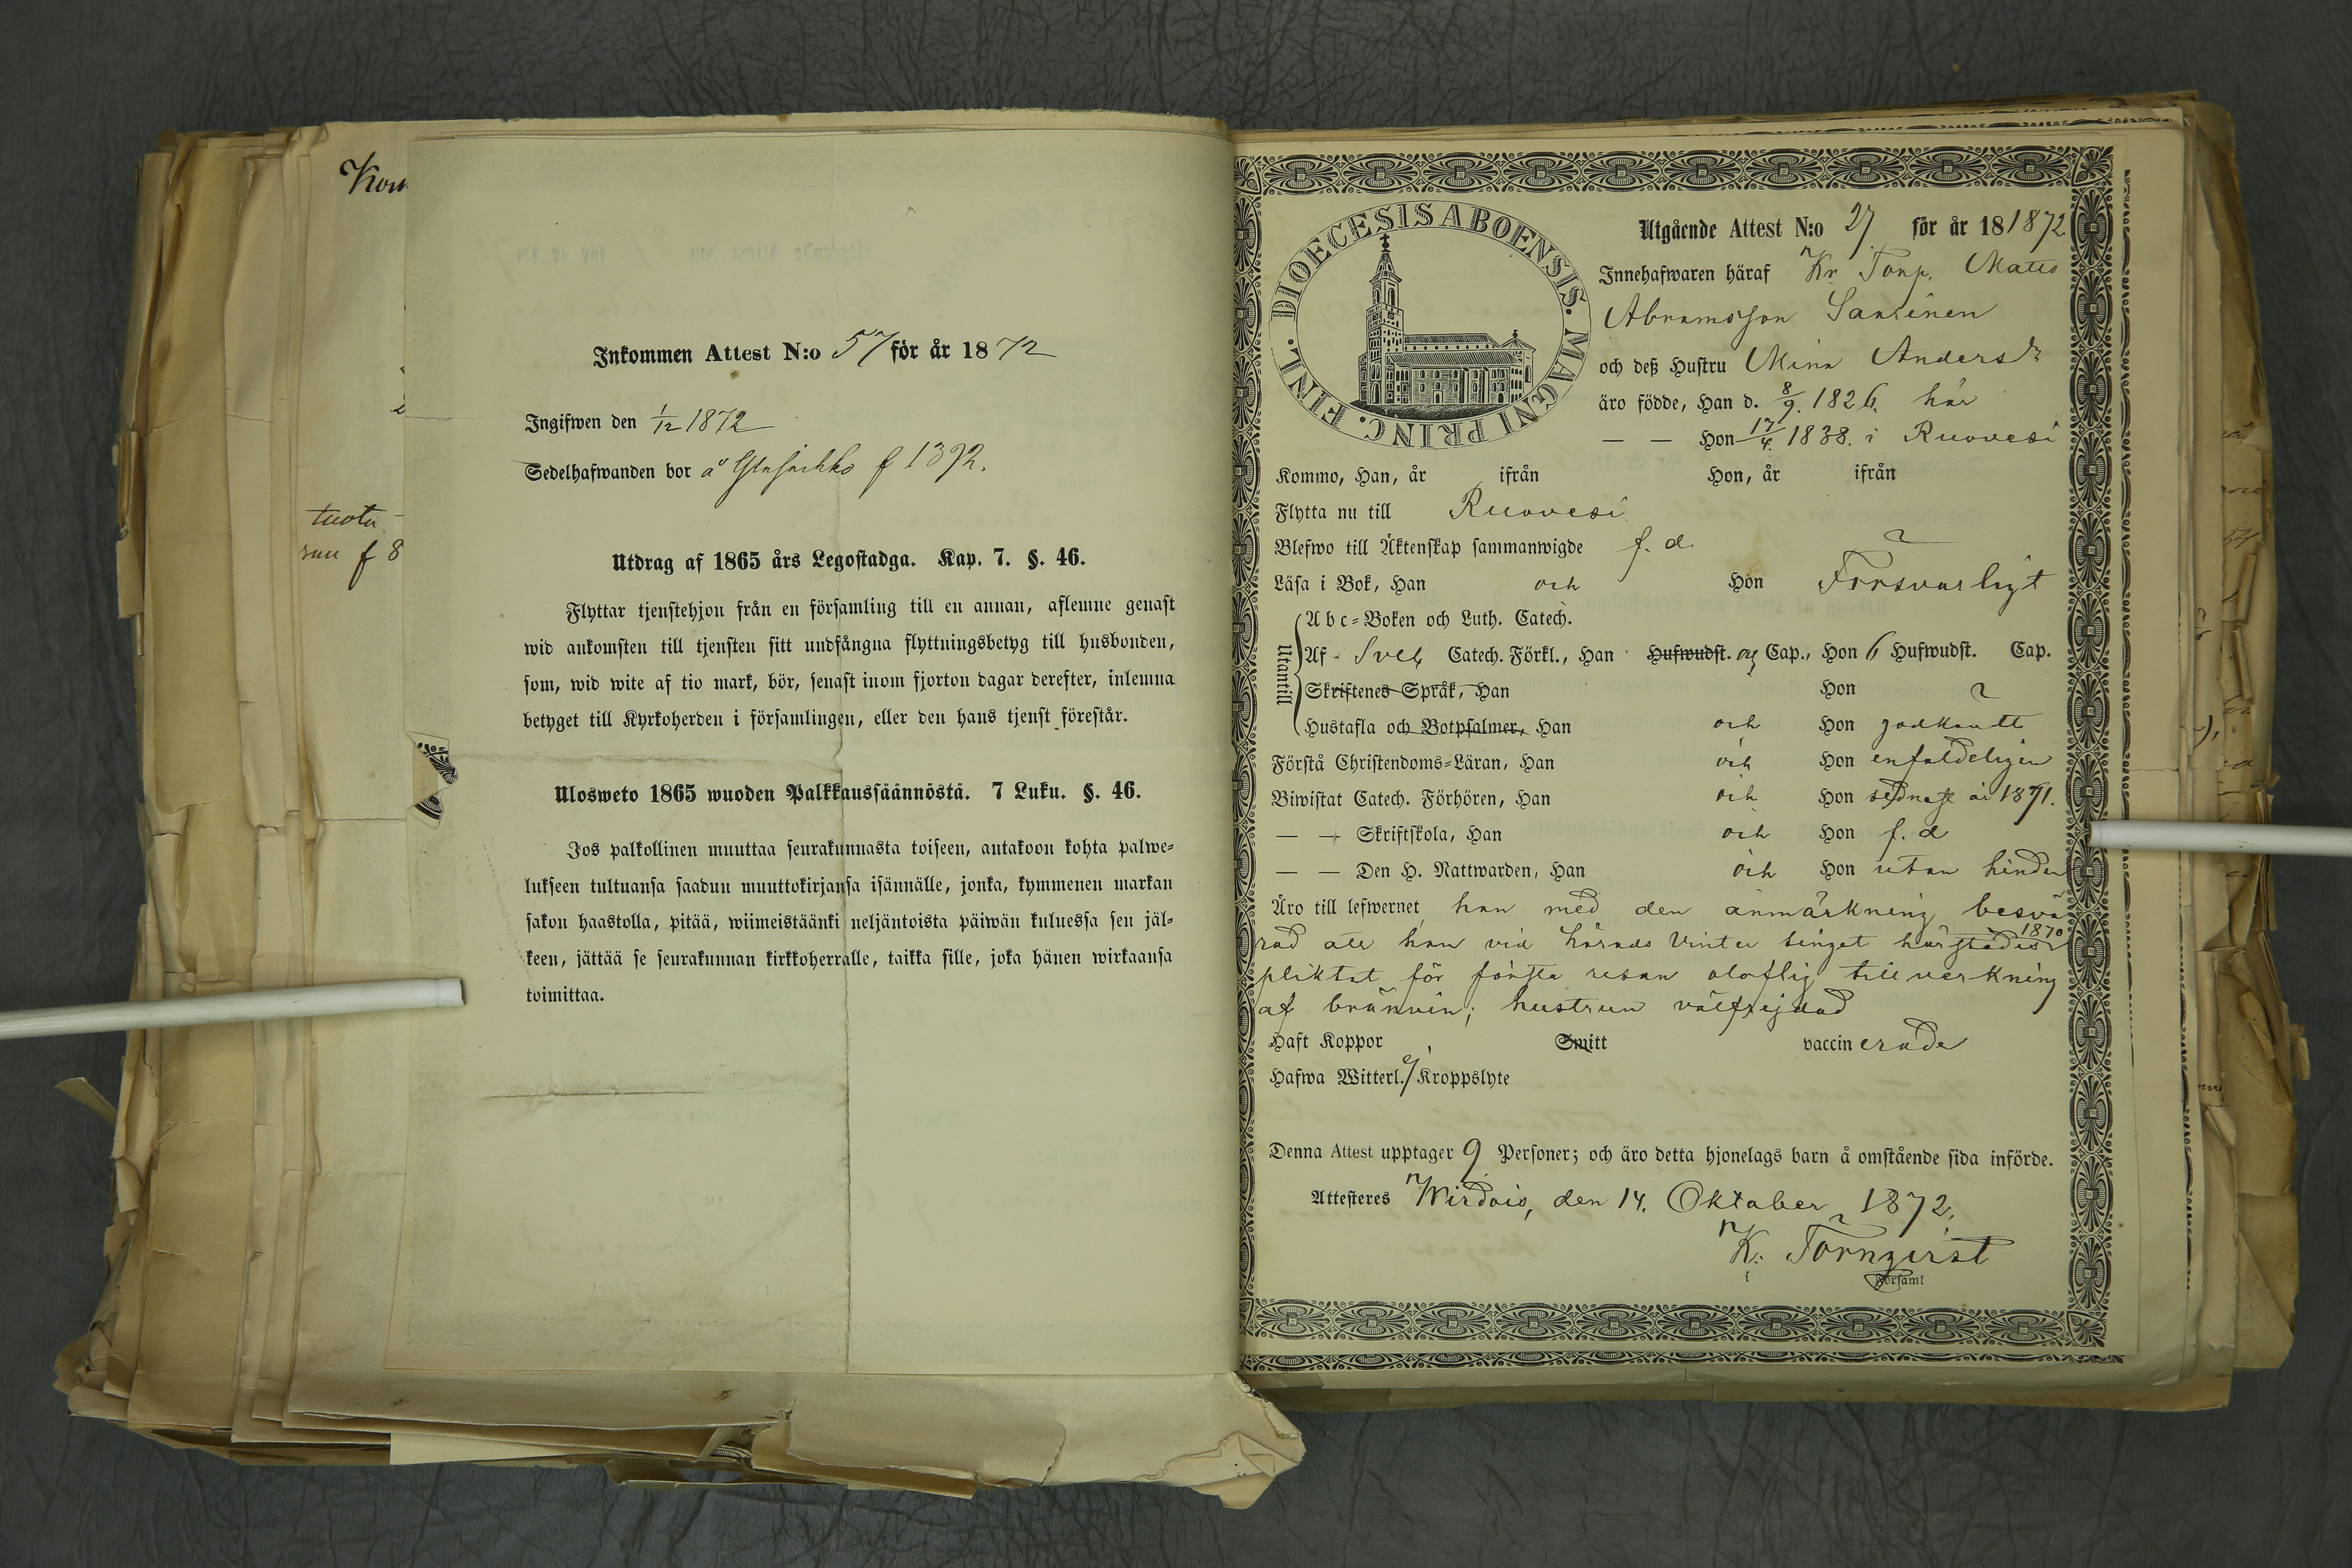 Kom
tuotu
f 8
Inkommen Attest N:o 57 för år 1872
Ingifwen den 1/12 1872
Sedelhafwanden bor å f 1392.
Utdrag af 1865 års Legostadga. Kap. 7. §. 46.
Flyttar tjenstehjon från en församling till en annan, aflemne genast
wid ankomsten till tjensten sitt undfångna flyttningsbetyg till husbonden,
som, wid wite af tio mark, bör, senast inom fjorton dagar derefter, inlemna
betyget till Kyrkoherden i församlingen, eller den hans tjenst förestår.
Ulosweto 1865 wuoden Palkkaussäännöstä. 7 Luku. §. 46.
Jos palkollinen muuttaa seurakunnasta toiseen, antakoon kohta palwe-
lukseen tultuansa saadun muuttokirjansa isännälle, jonka, kymmenen markan
sakon haastolla, pitää, wiimeistäänki neljäntoista päiwän kuluessa sen jäl-
keen, jättää se seurakunnan kirkkoherralle, taikka sille, joka hänen wirkaansa
toimittaa.
DIOECESIS ABOENSIS. MAGNI PRINC. FINL.
Utgående Attest N:o 27 för år 181872
Innehafwaren häraf Kr. Torp. Matts
Abramsson Saarinen
och deß Hustru Mina Andersdr
äro födde, Han d. 8/9. 1826. här
— — Hon 17/4. 1838. i Ruovesi
Kommo, Han, år ifrån Hon, år ifrån
Flytta nu till Ruovesi
Blefwo till Äktenskap sammanwigde f. d.
Läsa i Bok, Han och Hon Försvarligt
Utantill
Abc-Boken och Luth. Catech.
Af Sveb. Catech. Förkl., Han Hufwudst. och Cap., Hon 6 Hufwudst. Cap.
Skriftenes Språk, Han Hon
Hustafla och Botpsalmer, Han och Hon godkändt
Förstå Christendoms-Läran, Han och Hon enfaldeligen
Biwistat Catech. Förhören, Han och Hon sednast år 1871.
— — Skriftskola, Han och Hon f. d
— — Den H. Nattwarden, Han och Hon utan hinder
Äro till lefwernet han med den anmärkning besvä
rad att han vid härads Vinter tinget härstädes 1870
pliktat för första resan oloflig tillverkning
af bränvin; hustrun välfrejdad
Haft Koppor Smitt vaccinerade
Hafwa Witterl. ej Kroppslyte
Denna Attest upptager 9 Personer; och äro detta hjonelags barn å omstående sida införde.
Attesteres Wirdois, den 14. Oktober 1872.
K. Törnqvist
Församl